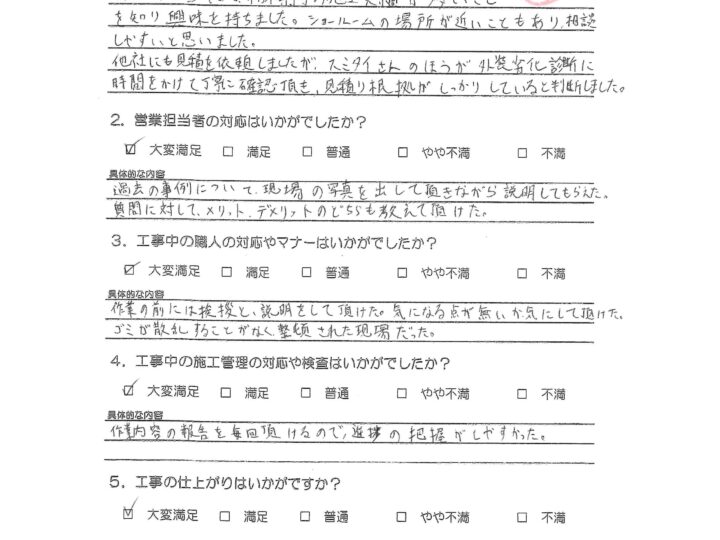 を知り興味を持ちました。ショールームの場所が近いこともあり、相談
しやすいと思いました。
他社にも見積を依頼しましたが、スミタイさんのほうが外装劣化診断に
時間をかけて丁寧に確認頂き、見積り根拠がしっかりしていると判断しました。
2．営業担当者の対応はいかがでしたか？
☑ 大変満足 □ 満足 □ 普通 □ やや不満 □ 不満
具体的な内容
過去の事例について、現場の写真を出して頂きながら説明してもらえた。
質問に対して、メリット、デメリットのどちらも教えて頂けた。
3．工事中の職人の対応やマナーはいかがでしたか？
☑ 大変満足 □ 満足 □ 普通 □ やや不満 □ 不満
具体的な内容
作業の前には挨拶と、説明をして頂けた。気になる点が無いか気にして頂けた、
ゴミが散乱することがなく、整頓された現場だった。
4．工事中の施工管理の対応や検査はいかがでしたか？
☑ 大変満足 □ 満足 □ 普通 □ やや不満 □ 不満
具体的な内容
作業内容の報告を毎回頂けるので、進捗の把握がしやすかった。
5．工事の仕上がりはいかがですか？
☑ 大変満足 □ 満足 □ 普通 □ やや不満 □ 不満